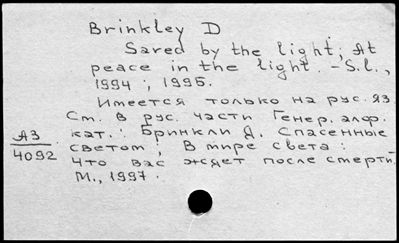 Brinkley D
Saved by the light; At
peace in the light. - S.l.,
1994; 1995.
Имеется только на рус. яз.
См. в рус. части Генер. алф.
кат.: Бринкли Д. Спасенные
светом; В мире света:
Что вас ждет после смерти.
М., 1997.
АЗ
4092